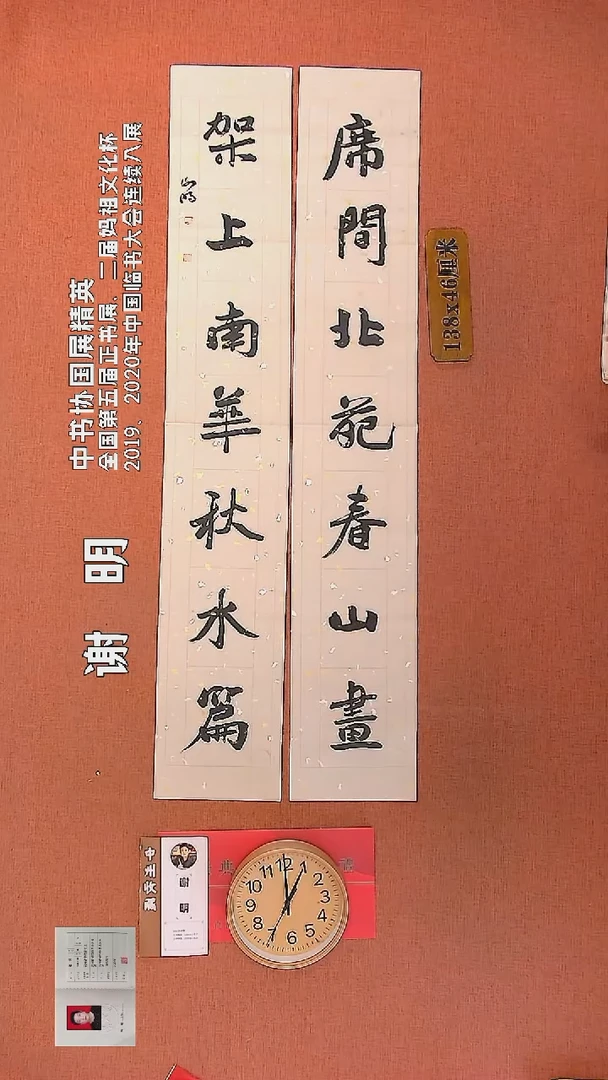 席間北苑春山畫
架上南華秋水篇
山明
138x46厘米
中书协国展精英
全国第五届正书展、二届妈祖文化杯
2019、2020年中国临书大会连续入展
谢 明
12
1
2
3
4
5
6
7
8
9
10
11